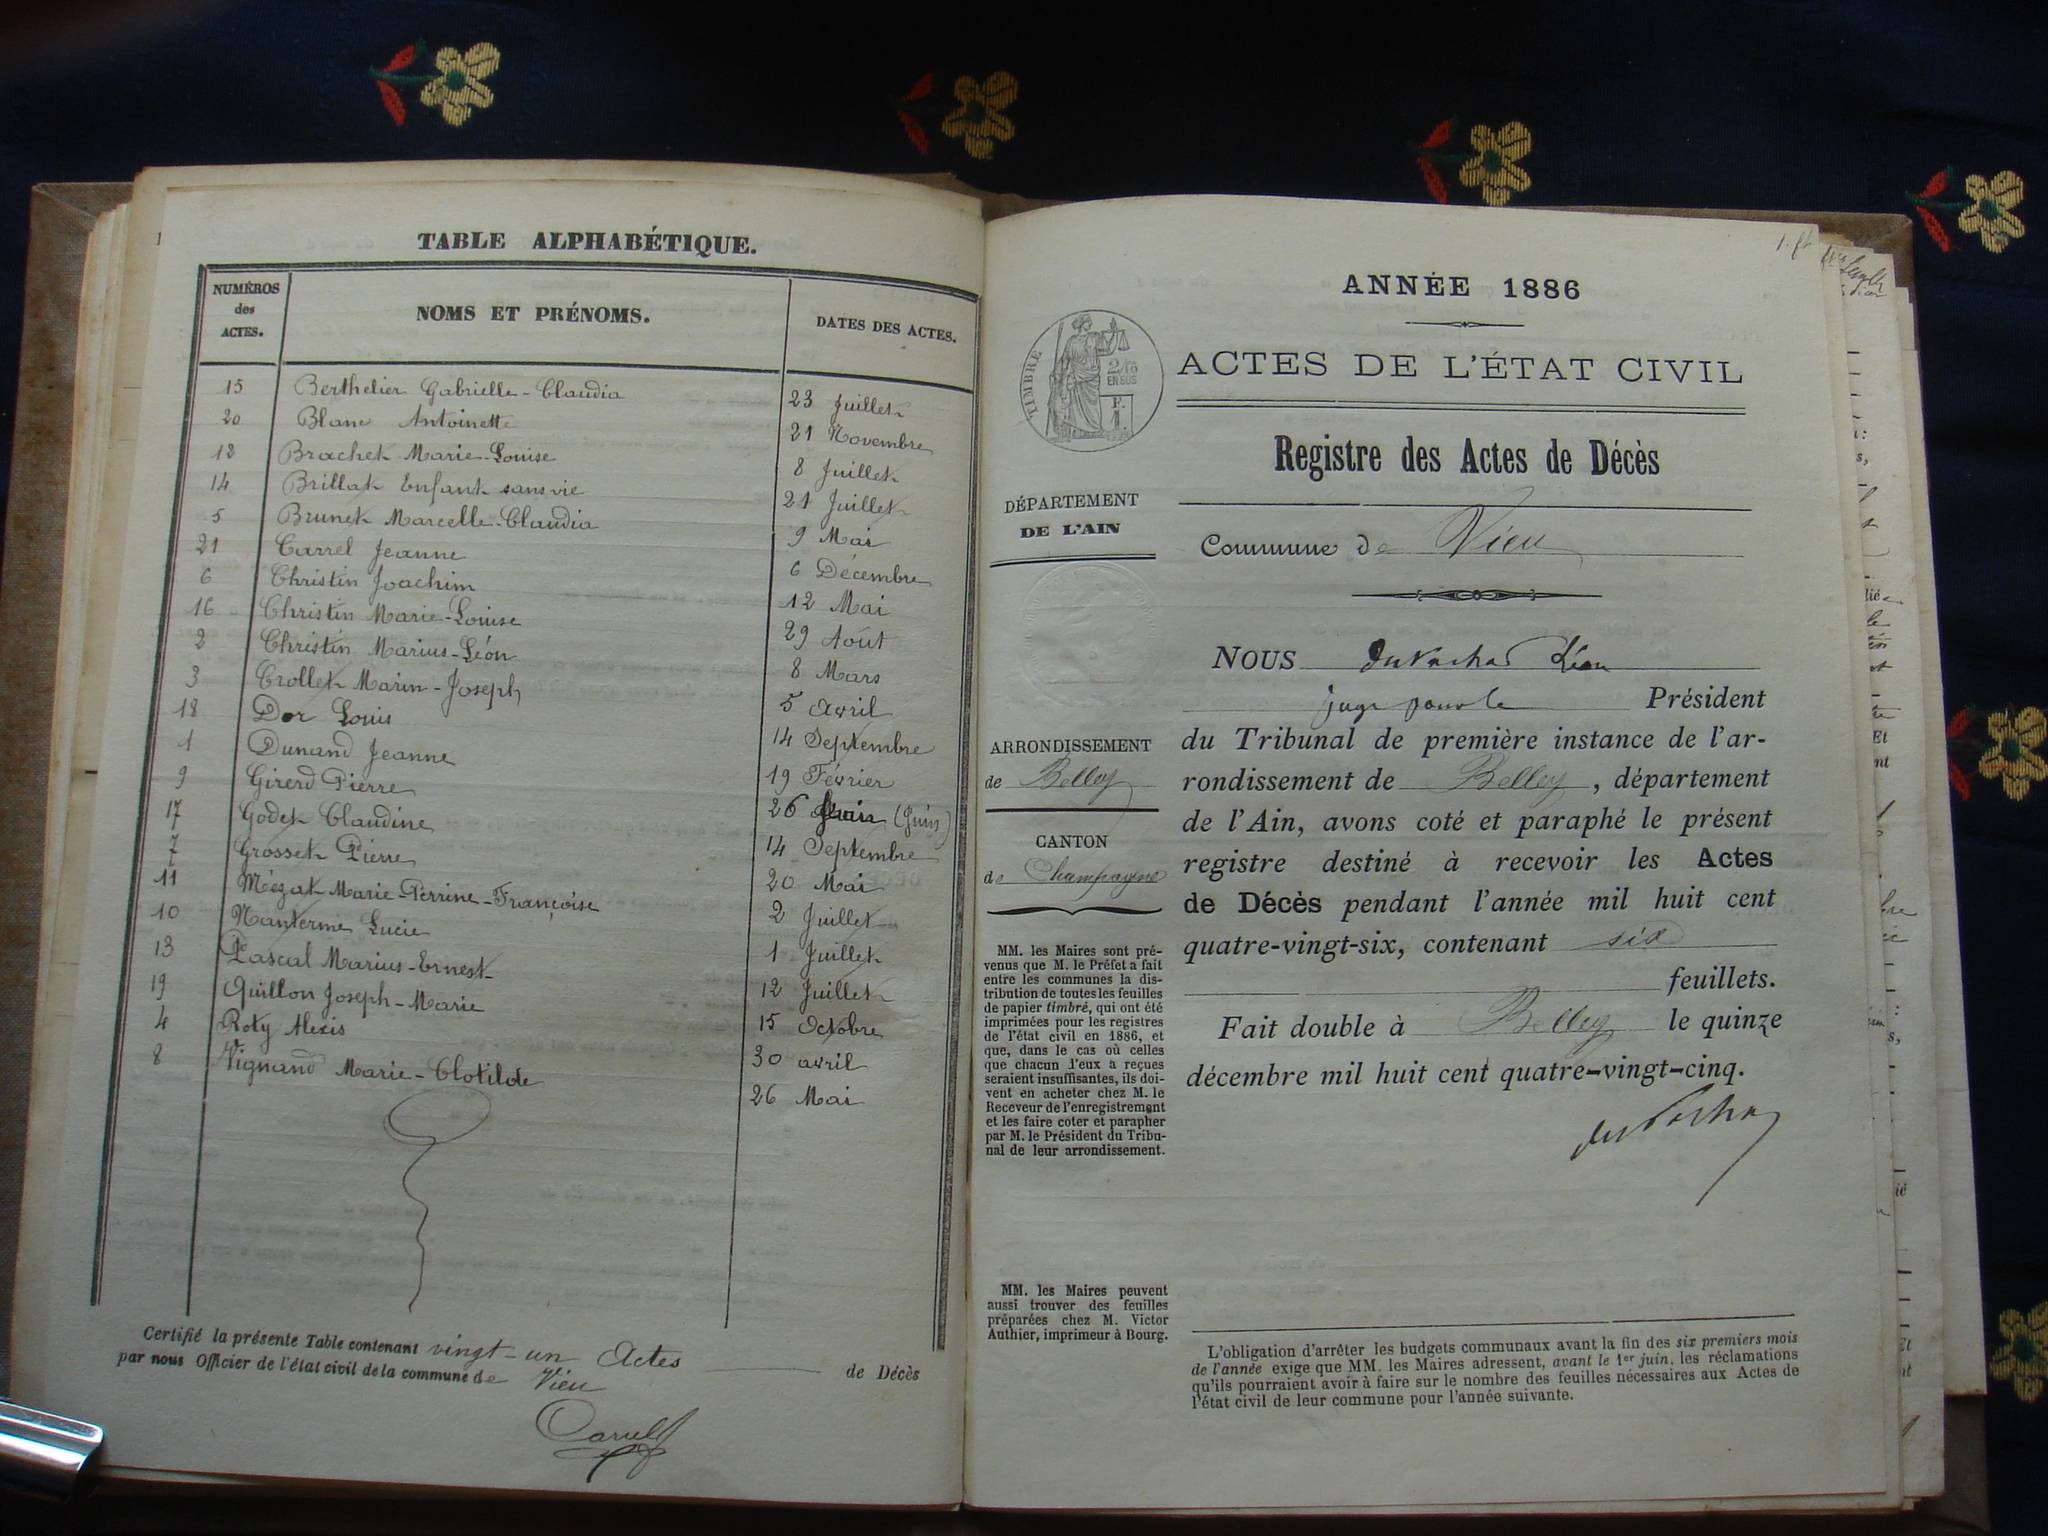 TABLE ALPHABÉTIQUE.
NUMÉROS des ACTES.
NOMS ET PRÉNOMS.
DATES DES ACTES.
15 Berthelier Gabrielle-Claudia 23 Juillet
20 Blanc Antoinette 21 Novembre
12 Brachet Marie-Louise 8 Juillet
14 Brillat Enfant sans vie 21 Juillet
5 Brunet Marcelle-Claudia 9 Mai
21 Carrel Jeanne 6 Décembre
6 Christin Joachim 12 Mai
16 Christin Marie-Louise 29 Août
2 Christin Marius-Léon 8 Mars
3 Crollet Marin-Joseph 5 avril
18 Dor Louis 14 Septembre
1 Dunand Jeanne 19 Février
9 Girerd Pierre 26 Juin (Juin)
17 Godet Claudine 14 Septembre
7 Grosset Pierre 20 Mai
11 Mézat Marie-Perrine-Françoise 2 Juillet
10 Nanterme Lucie 1 Juillet
13 Pascal Marius-Ernest 12 Juillet
19 Quillon Joseph-Marie 15 Octobre
4 Roty Alexis 30 avril
8 Vignand Marie-Clotilde 26 Mai
Certifié la présente Table contenant vingt-un Actes de Décès
par nous Officier de l'état civil de la commune de Vieu
ANNÉE 1886
TIMBRE
2/10
EN SUS
ACTES DE L'ÉTAT CIVIL
Registre des Actes de Décès
DÉPARTEMENT
DE L'AIN
Commune de Vieu
ARRONDISSEMENT
de Belley
CANTON
de Champagne
MM. les Maires sont pré-
venus que M. le Préfet a fait
entre les communes la dis-
tribution de toutes les feuilles
de papier timbré, qui ont été
imprimées pour les registres
de l'état civil en 1886, et
que, dans le cas où celles
que chacun d'eux a reçues
seraient insuffisantes, ils doi-
vent en acheter chez M. le
Receveur de l'enregistrement
et les faire coter et parapher
par M. le Président du Tribu-
nal de leur arrondissement.
MM. les Maires peuvent
aussi trouver des feuilles
préparées chez M. Victor
Authier, imprimeur à Bourg.
NOUS Léon
juge pour le Président
du Tribunal de première instance de l'ar-
rondissement de Belley, département
de l'Ain, avons coté et paraphé le présent
registre destiné à recevoir les Actes
de Décès pendant l'année mil huit cent
quatre-vingt-six, contenant six
feuillets.
Fait double à Belley le quinze
décembre mil huit cent quatre-vingt-cinq.
L'obligation d'arrêter les budgets communaux avant la fin des six premiers mois
de l'année exige que MM. les Maires adressent, avant le 1er juin, les réclamations
qu'ils pourraient avoir à faire sur le nombre des feuilles nécessaires aux Actes de
l'état civil de leur commune pour l'année suivante.